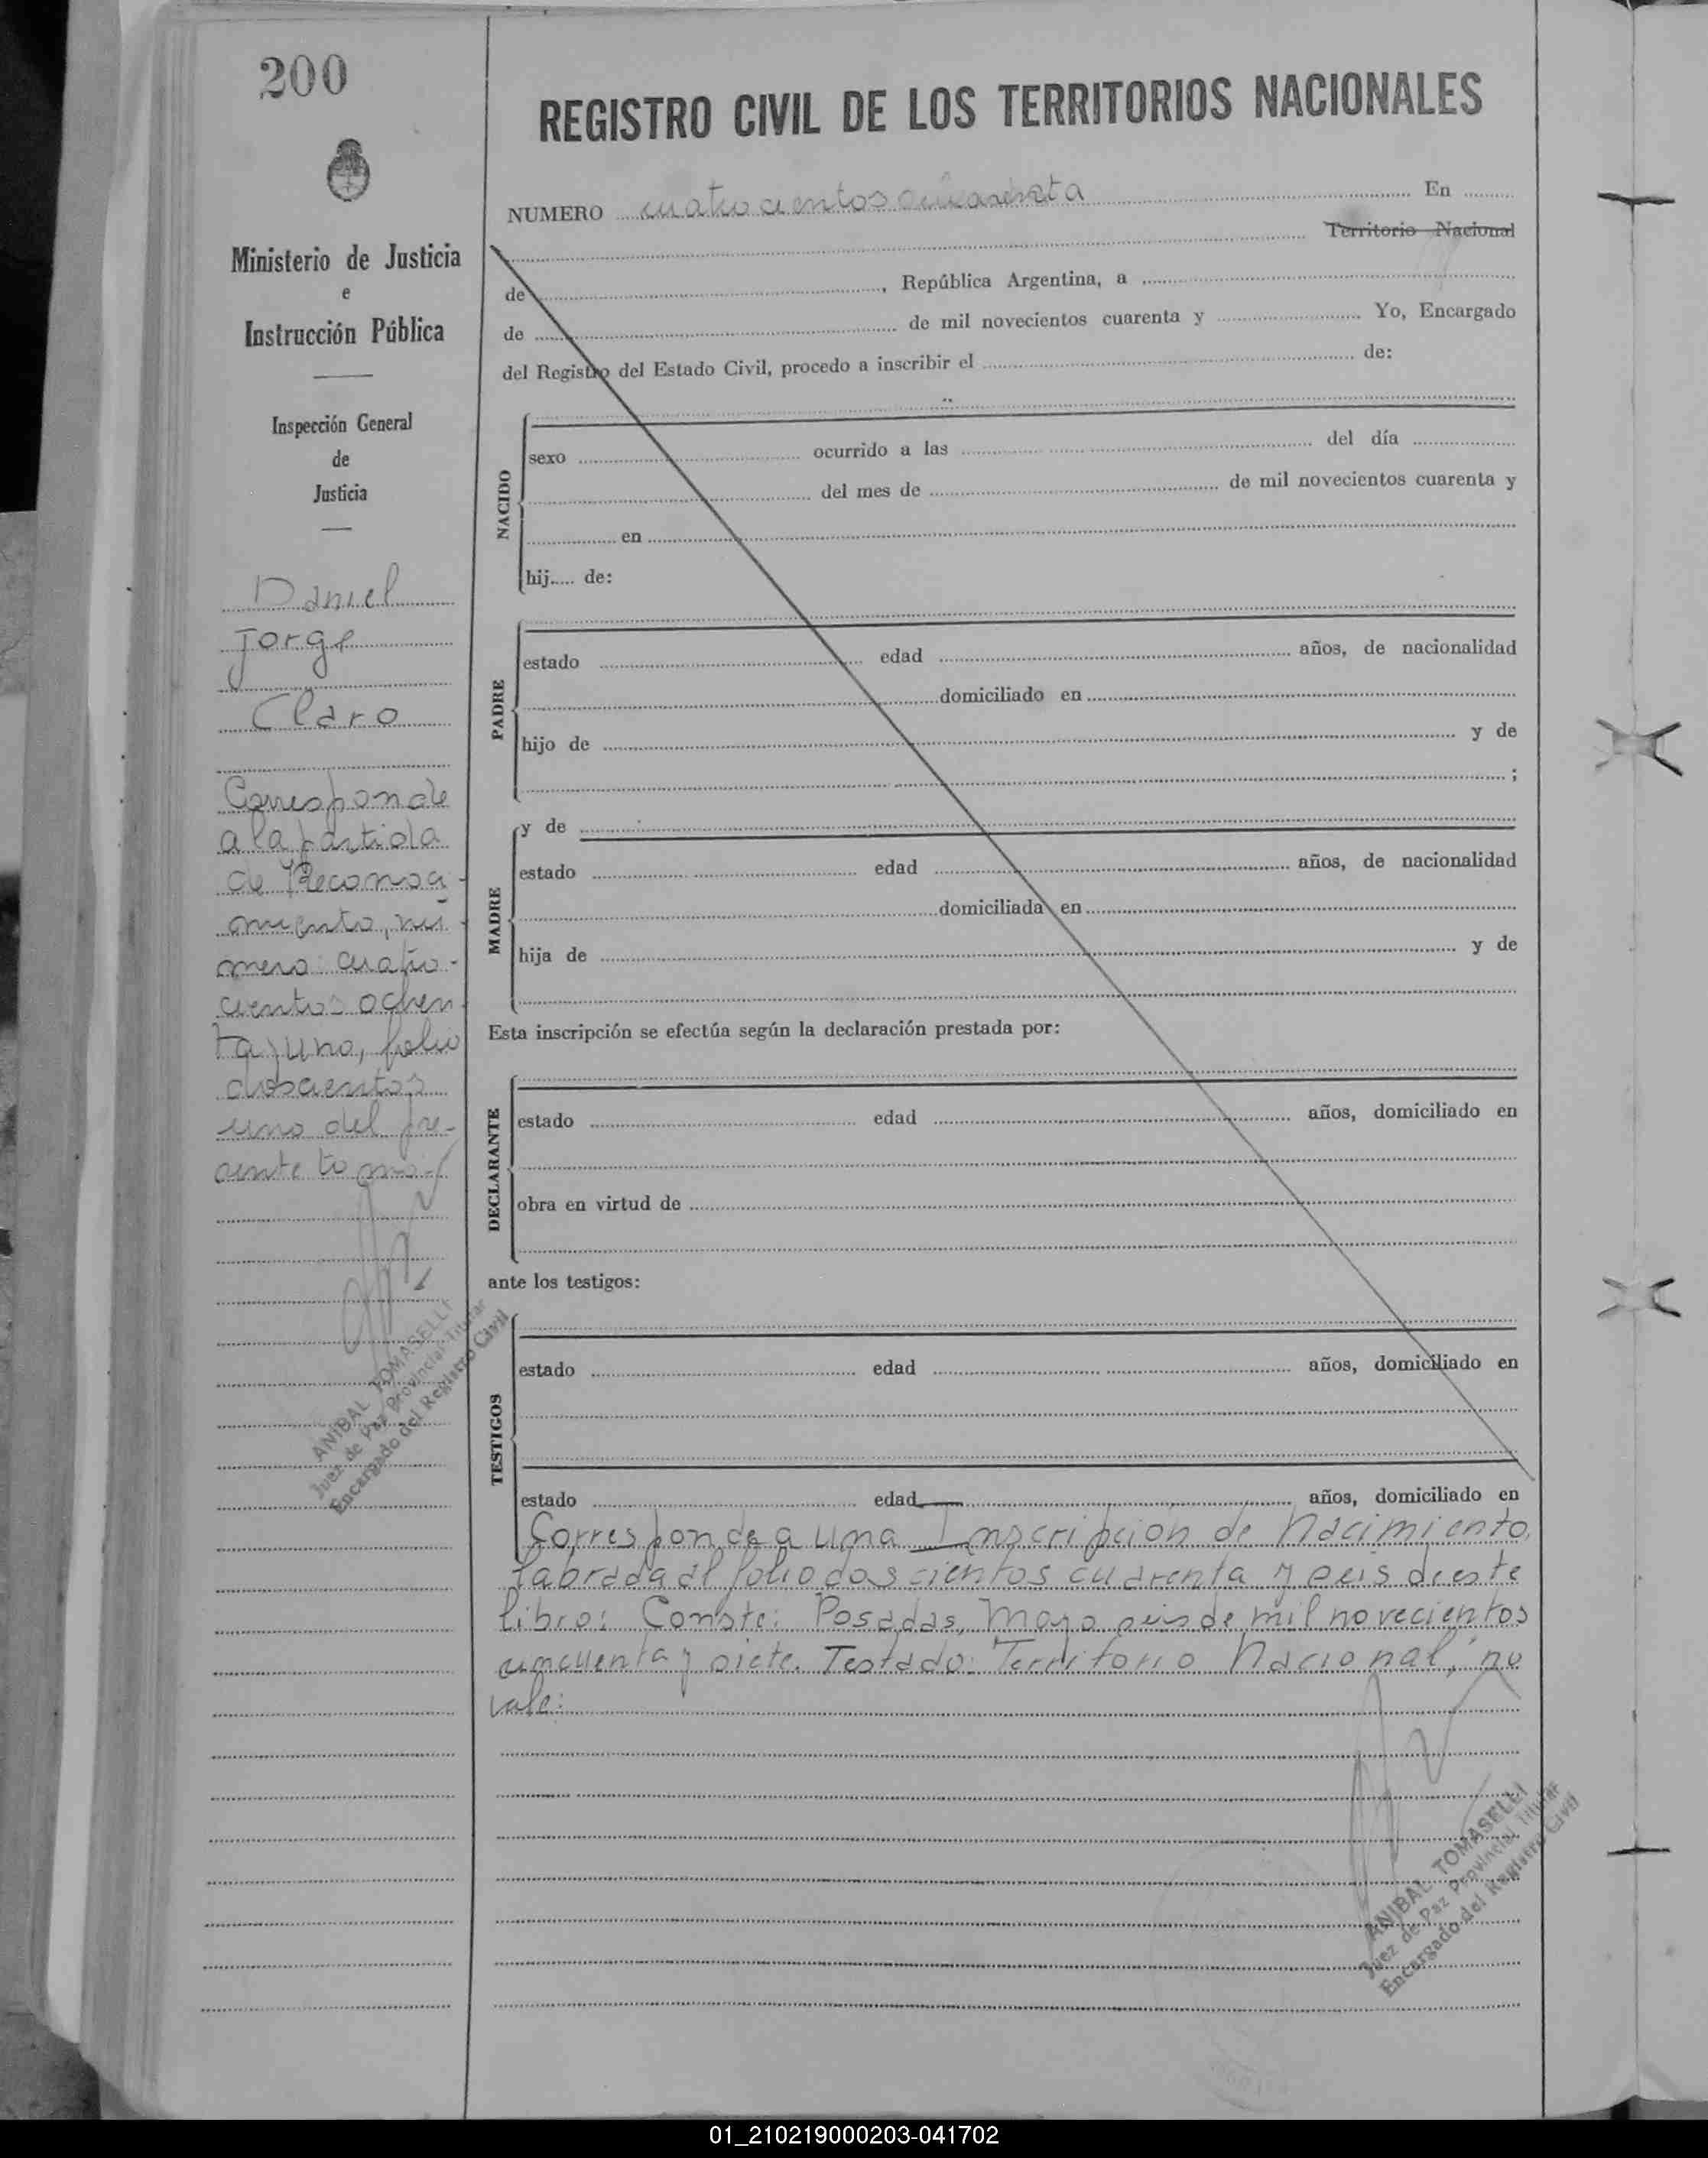 200
Ministerio de Justicia
e
Instrucción Pública
Inspección General
de
Justicia
Daniel
Jorge
Claro
Corresponde
a la partida
de Reconoci-
miento, nú-
mero: cuatro-
cientos ochen-
ta y uno, folio
doscientos
uno del pre-
sente tomo.-
ANIBAL TOMASELLI
Juez de Paz Provincial Titular
Encargado del Registro Civil
REGISTRO CIVIL DE LOS TERRITORIOS NACIONALES
NUMERO cuatrocientos En
Territorio Nacional
de , República Argentina, a
de de mil novecientos cuarenta y Yo, Encargado
del Registro del Estado Civil, procedo a inscribir el de:
NACIDO
sexo ocurrido a las del día
del mes de de mil novecientos cuarenta y
en
hij..... de:
PADRE
estado edad años, de nacionalidad
domiciliado en
hijo de y de
;
MADRE
y de
estado edad años, de nacionalidad
domiciliada en
hija de y de
Esta inscripción se efectúa según la declaración prestada por:
DECLARANTE
estado edad años, domiciliado en
obra en virtud de
ante los testigos:
TESTIGOS
estado edad años, domiciliado en
estado edad años, domiciliado en
Corresponde a una Inscripcion de Nacimiento,
labrada al folio doscientos cuarenta y seis de este
libro: Conste: Posadas, Mayo seis de mil novecientos
cincuenta y siete. Testado: Territorio Nacional, no
vale:
ANIBAL TOMASELLI
Juez de Paz Provincial Titular
Encargado del Registro Civil
01_210219000203-041702